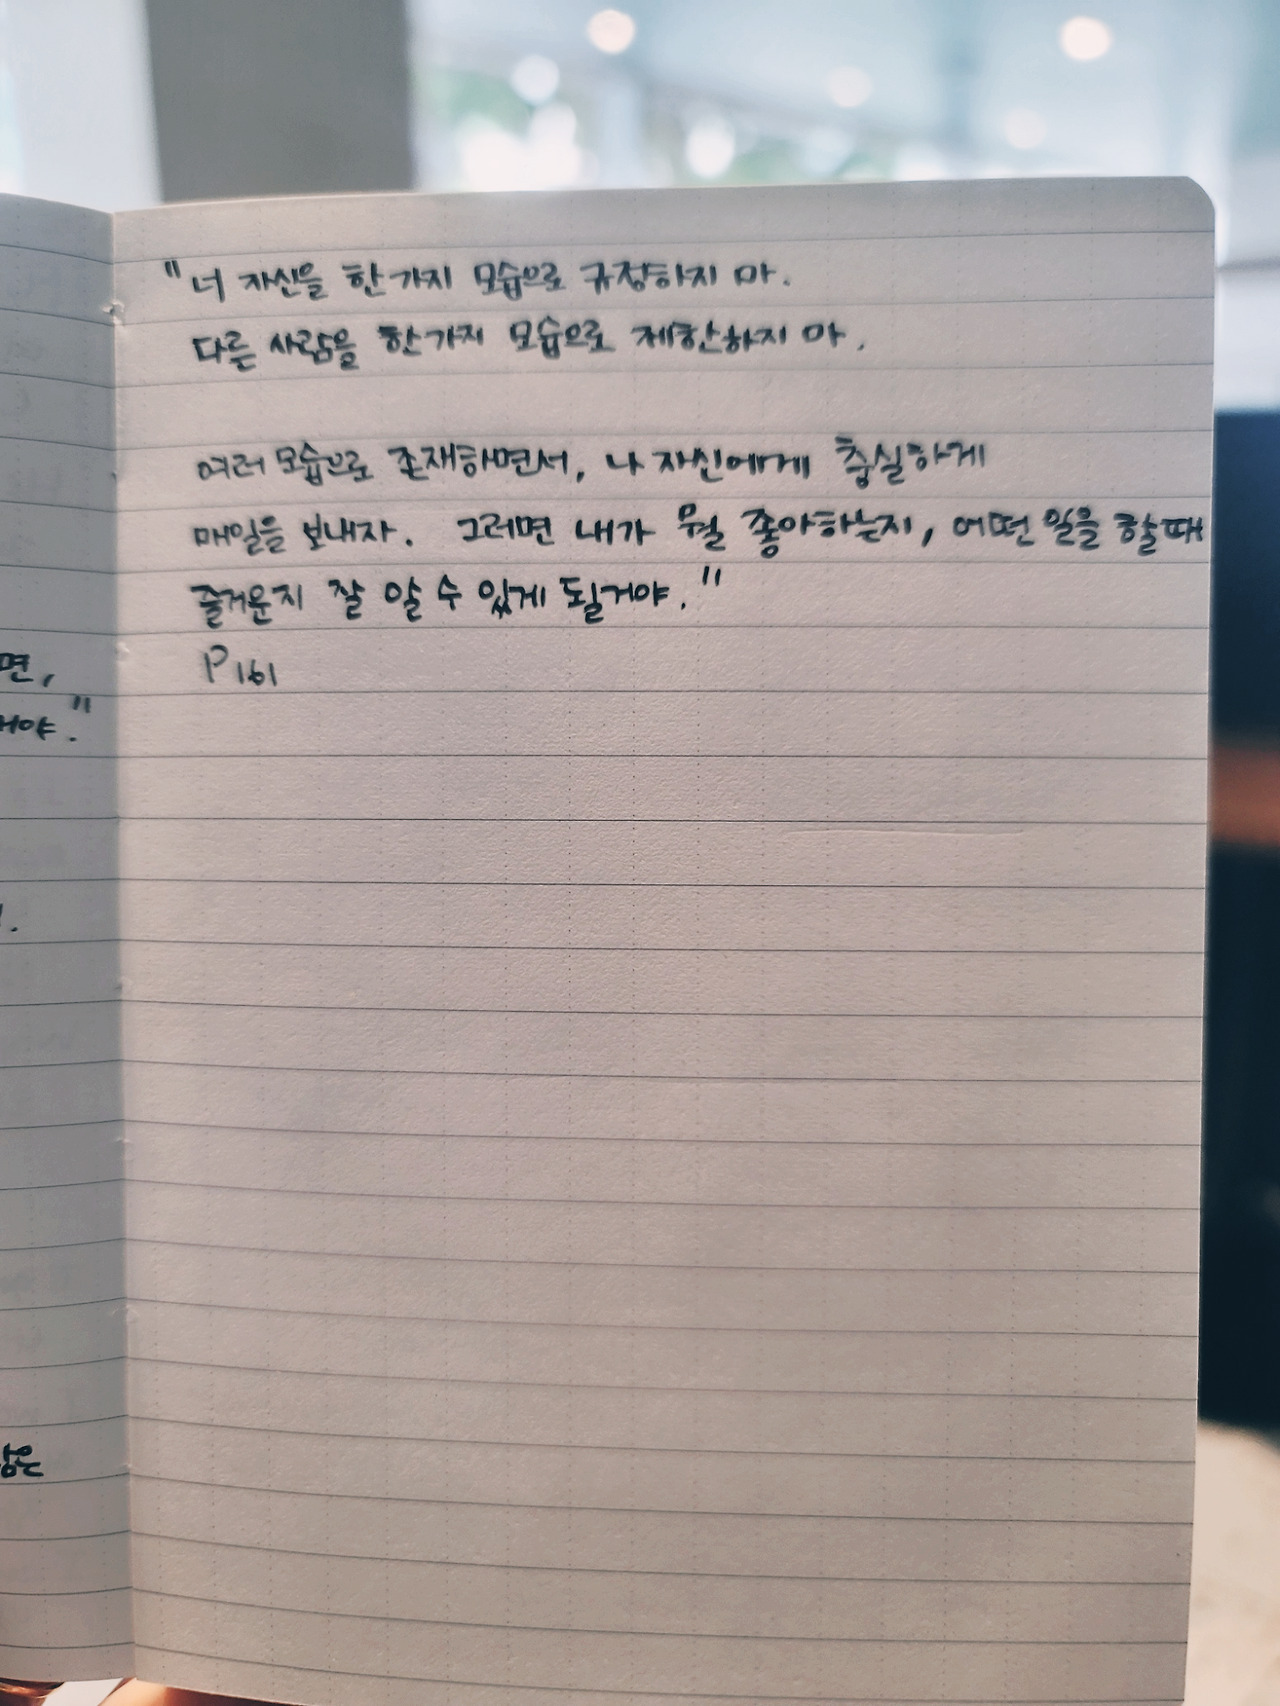 "너 자신을 한가지 모습으로 규정하지 마.
다른 사람을 한가지 모습으로 제한하지 마.
여러 모습으로 존재하면서, 나 자신에게 충실하게
매일을 보내자. 그러면 내가 뭘 좋아하는지, 어떤 일을 할때
즐거운지 잘 알 수 있게 될거야."
P161
면,
거야."